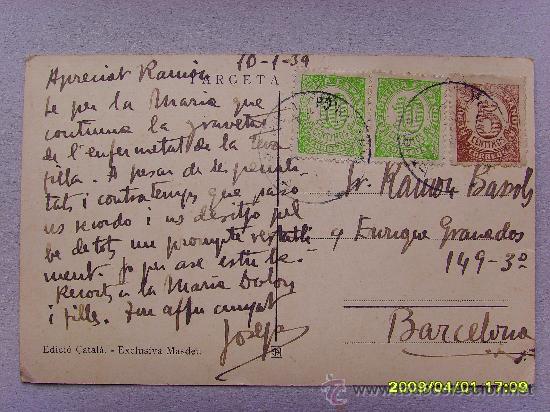 10-1-39
TARGETA
Apreciat Ramón
Se per la Maria que
continua la gravetat
de l'enfermetat de la teva
filla. A pesar de les penali-
tats i contratemps que passo
us recordo i us desitjo pel
be de tots un prompte restabli-
ment. Jo per ase
Records a la Maria Dolors
i fills. Ton affm cunyat
Josep
Sr. Ramón Bassols
Enrique Granados
149-3º
Barcelona
Edició Català. - Exclusiva Masdeu.
2009/04/01 17:09